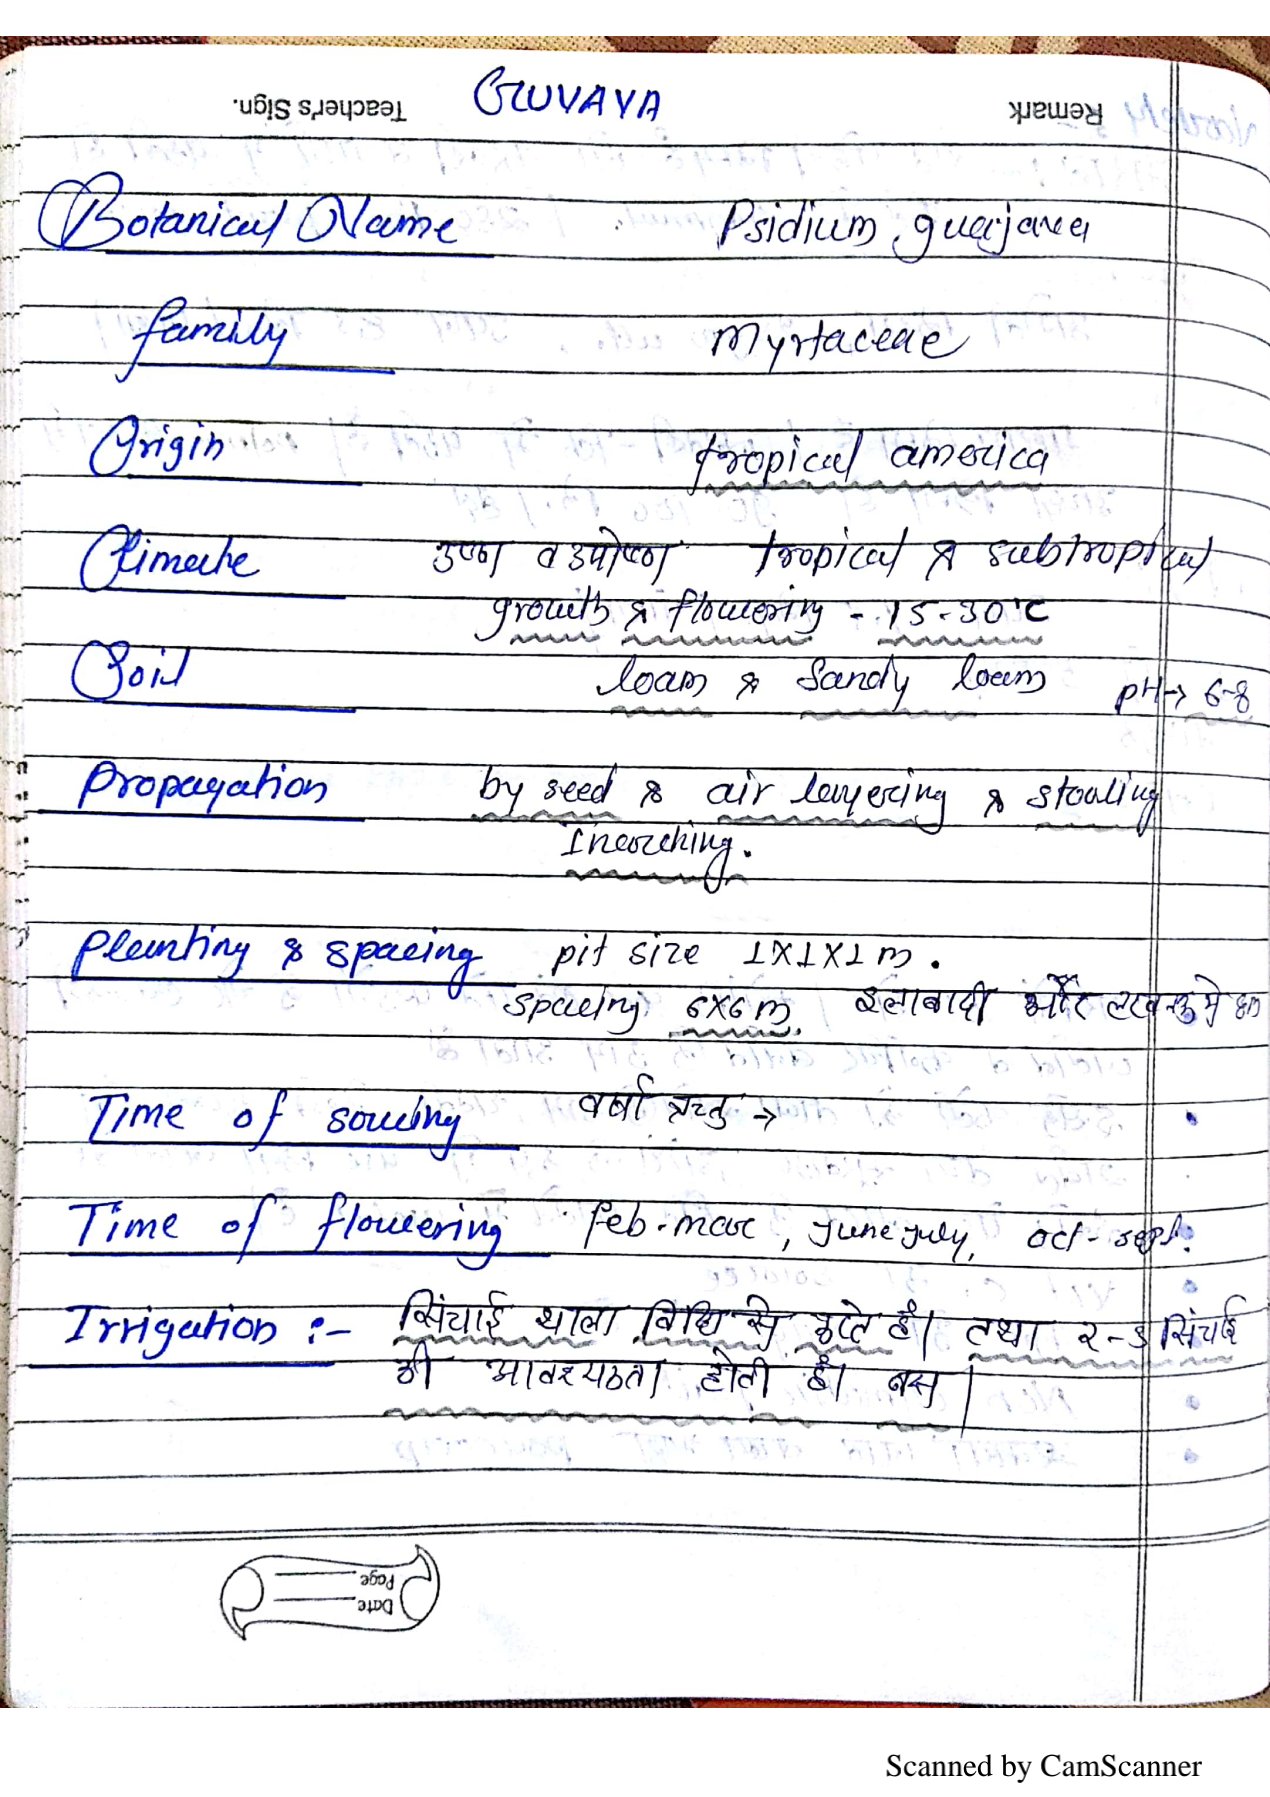 Teacher's Sign.
GUVAVA
Remark
Botanical Name Psidium guajava
family Myrtaceae
Origin tropical america
Climate उष्ण व उपोष्ण tropical & subtropical
growth & flowering - 15-30°C
Soil loam & Sandy loam pH→ 6-8
Propagation by seed & air layering & stooling
Inarching.
Planting & spacing pit size 1X1X1 m.
spacing 6X6 m. इलाबादी और लखनऊ में
Time of sowing वर्षा ऋतु →
Time of flowering feb-mar, june july, oct-sept.
Irrigation :- सिंचाई थाला विधि से करते है। तथा २-३ सिंचाई
की आवश्यकता होती है। बस।
Page
Date
Scanned by CamScanner